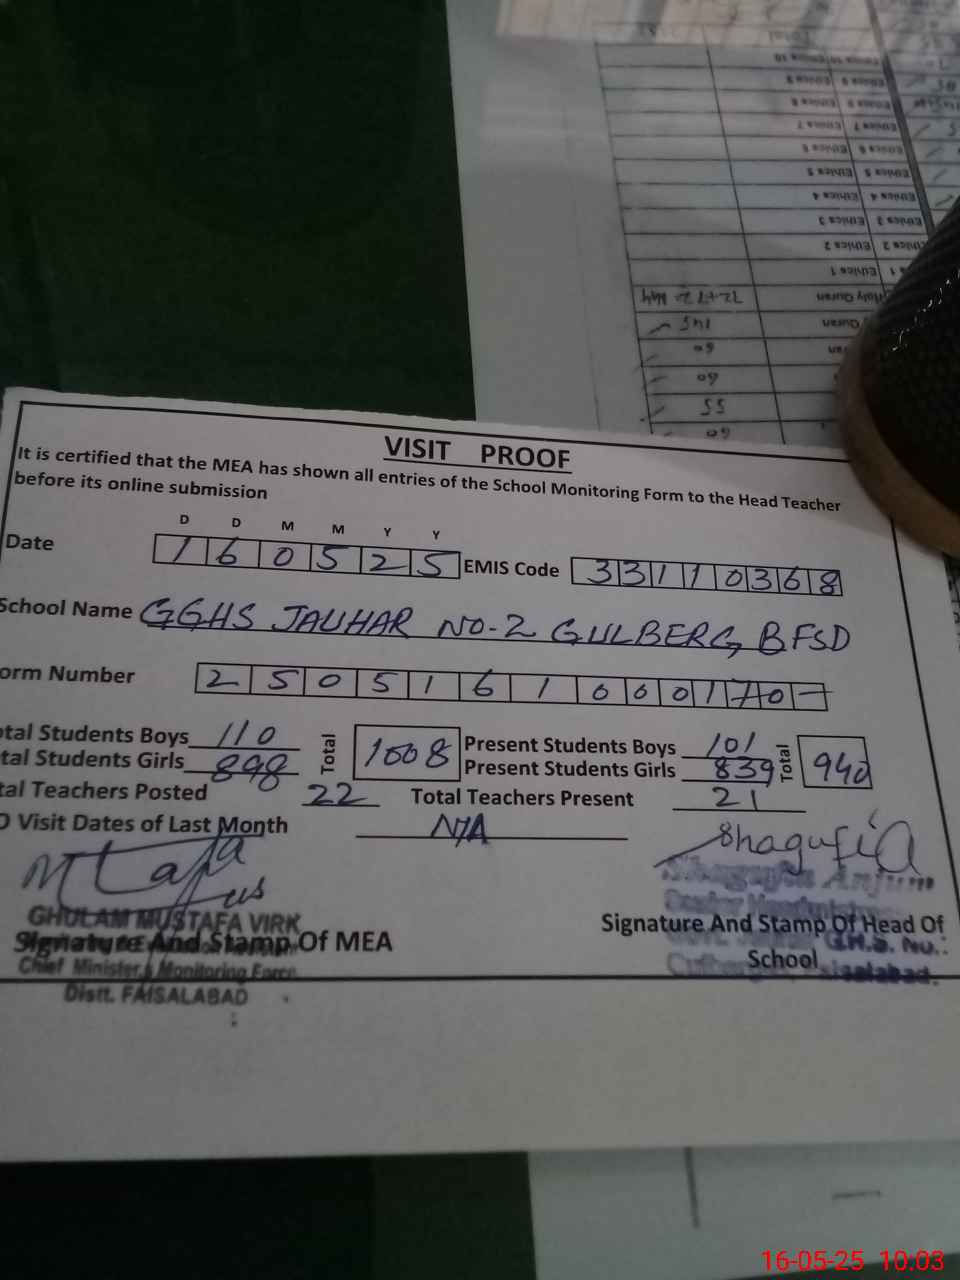 VISIT PROOF
It is certified that the MEA has shown all entries of the School Monitoring Form to the Head Teacher
before its online submission
D D M M Y Y
Date 1 6 0 5 2 5 EMIS Code 3 3 1 1 0 3 6 8
School Name GGHS JAUHAR NO-2 GULBERG, B FSD
orm Number 2 5 0 5 1 6 1 0 0 0 1 7 0 -
otal Students Boys 110 Total 1008 Present Students Boys 101 Total 940
tal Students Girls 898 Present Students Girls 839
tal Teachers Posted 22 Total Teachers Present 21
O Visit Dates of Last Month N/A
Mtafa Shagufta
us
GHULAM MUSTAFA VIRK
Signature And Stamp Of MEA
Chief Minister's Monitoring Force
Distt. FAISALABAD
Shagufta Anjum
Signature And Stamp Of Head Of
School
G.H.S. No.:
Total
Ethics 10
Ethics 9 Ethics 9
Ethics 8 Ethics 8
Ethics 7 Ethics 7
Ethics 6 Ethics 6
Ethics 5 Ethics 5
Ethics 4 Ethics 4
Ethics 3 Ethics 3
Ethics 2 Ethics 2
Ethics 1
Holy Quran
Quran 145
60
60
55
60
16-05-25 10:03